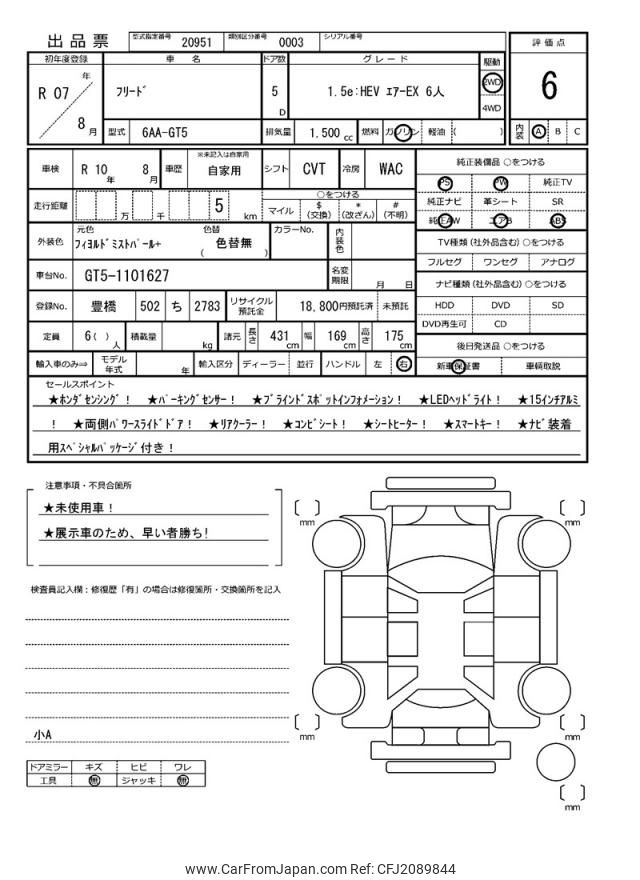 出品票 型式指定番号 20951 類別区分番号 0003 シリアル番号
評価点
6
内装 A B C
初年度登録 車名 ドア数 グレード 駆動
R 07 年 8 月 フリード 5 D 1.5e:HEV エアーEX 6人 2WD 4WD
型式 6AA-GT5 排気量 1.500 cc 燃料 ガソリン 軽油 ( )
車検 R 10 年 8 月 車歴 ※未記入は自家用 自家用 シフト CVT 冷房 WAC
純正装備品 ○をつける
PS PW 純正TV
純正ナビ 革シート SR
純正AW エアB ABS
走行距離 万 千 5 km ○をつける
マイル $(交換) *(改ざん) #(不明)
外装色 元色 フィヨルドミストパール+ 色替 ( 色替無 ) カラーNo. 内装色
TV種類 (社外品含む) ○をつける
フルセグ ワンセグ アナログ
車台No. GT5-1101627 名変期限 月 日
ナビ種類 (社外品含む) ○をつける
HDD DVD SD
DVD再生可 CD
登録No. 豊橋 502 ち 2783 リサイクル預託金 18,800円預託済 未預託
定員 6( ) 人 積載量 kg 諸元 長さ 431 cm 幅 169 cm 高さ 175 cm
後日発送品 ○をつける
新車保証書 車輌取説
輸入車のみ⇒ モデル年式 年 輸入区分 ディーラー 並行 ハンドル 左 右
セールスポイント
★ホンダセンシング! ★パーキングセンサー! ★ブラインドスポットインフォメーション! ★LEDヘッドライト! ★15インチアルミ
! ★両側パワースライドドア! ★リアクーラー! ★コンビシート! ★シートヒーター! ★スマートキー! ★ナビ装着
用スペシャルパッケージ付き!
注意事項・不具合箇所
★未使用車!
★展示車のため、早い者勝ち!
検査員記入欄:修復歴「有」の場合は修復箇所・交換箇所を記入
小A
ドアミラー キズ ヒビ ワレ
工具 無 ジャッキ 無
mm
mm
mm
mm
mm
www.CarFromJapan.com Ref: CFJ2089844